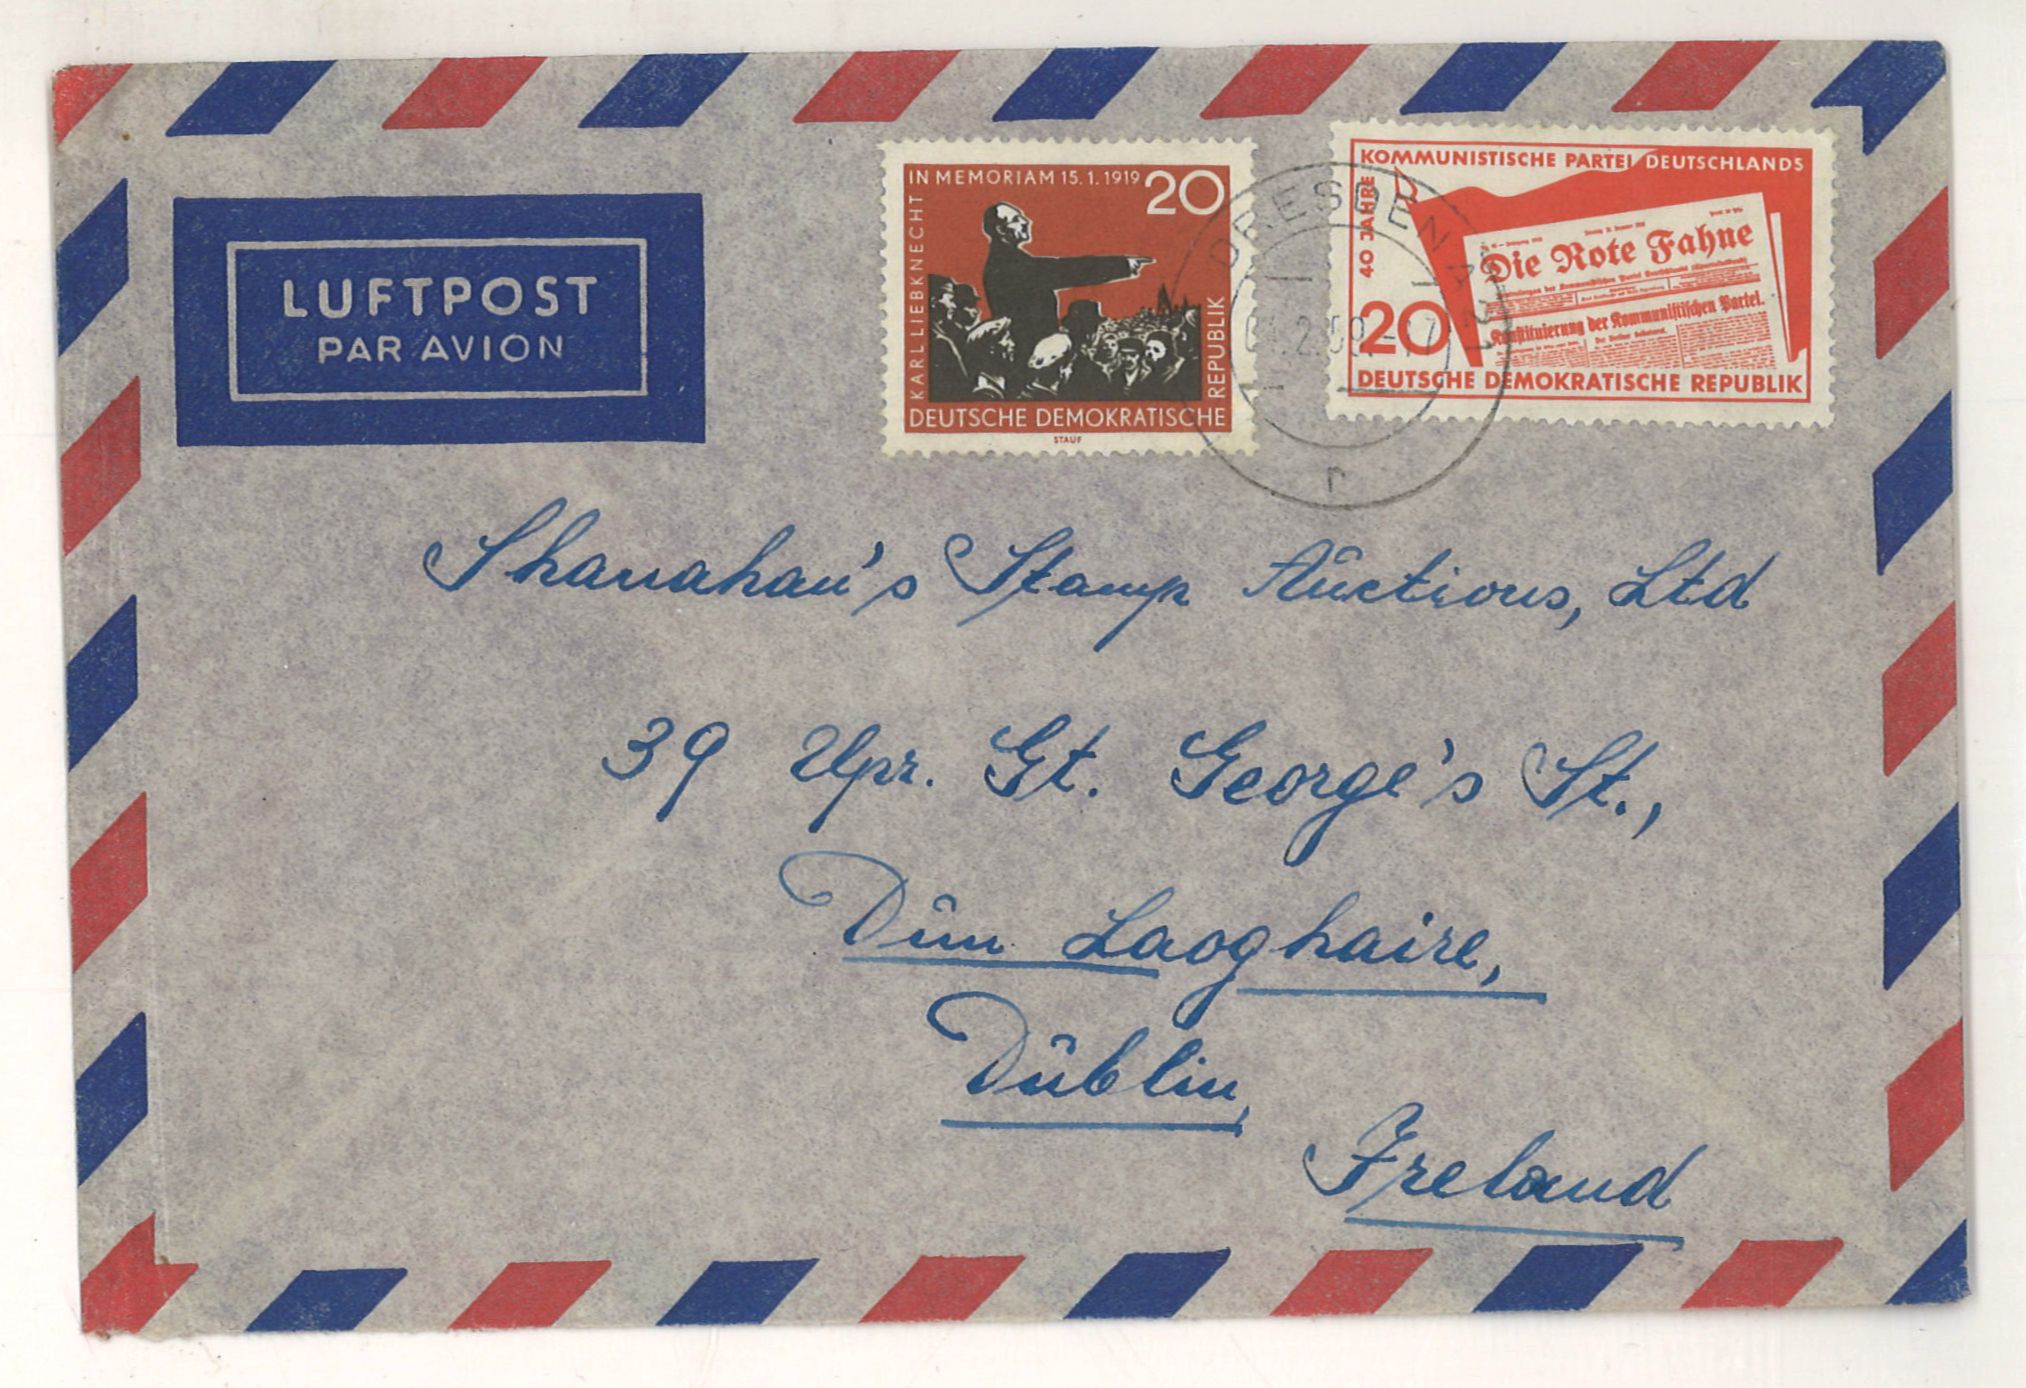 LUFTPOST
PAR AVION
IN MEMORIAM 15.1.1919 20
KARL LIEBKNECHT
REPUBLIK
DEUTSCHE DEMOKRATISCHE
STAUF
KOMMUNISTISCHE PARTEI DEUTSCHLANDS
40 JAHRE
Die Rote Fahne
Konstituierung der Kommunistischen Partei.
20
DEUTSCHE DEMOKRATISCHE REPUBLIK
DRESDEN
r
Shanahan's Stamp Auctions, Ltd
39 Upr. Gt. George's St.,
Dun Laoghaire,
Dublin,
Ireland